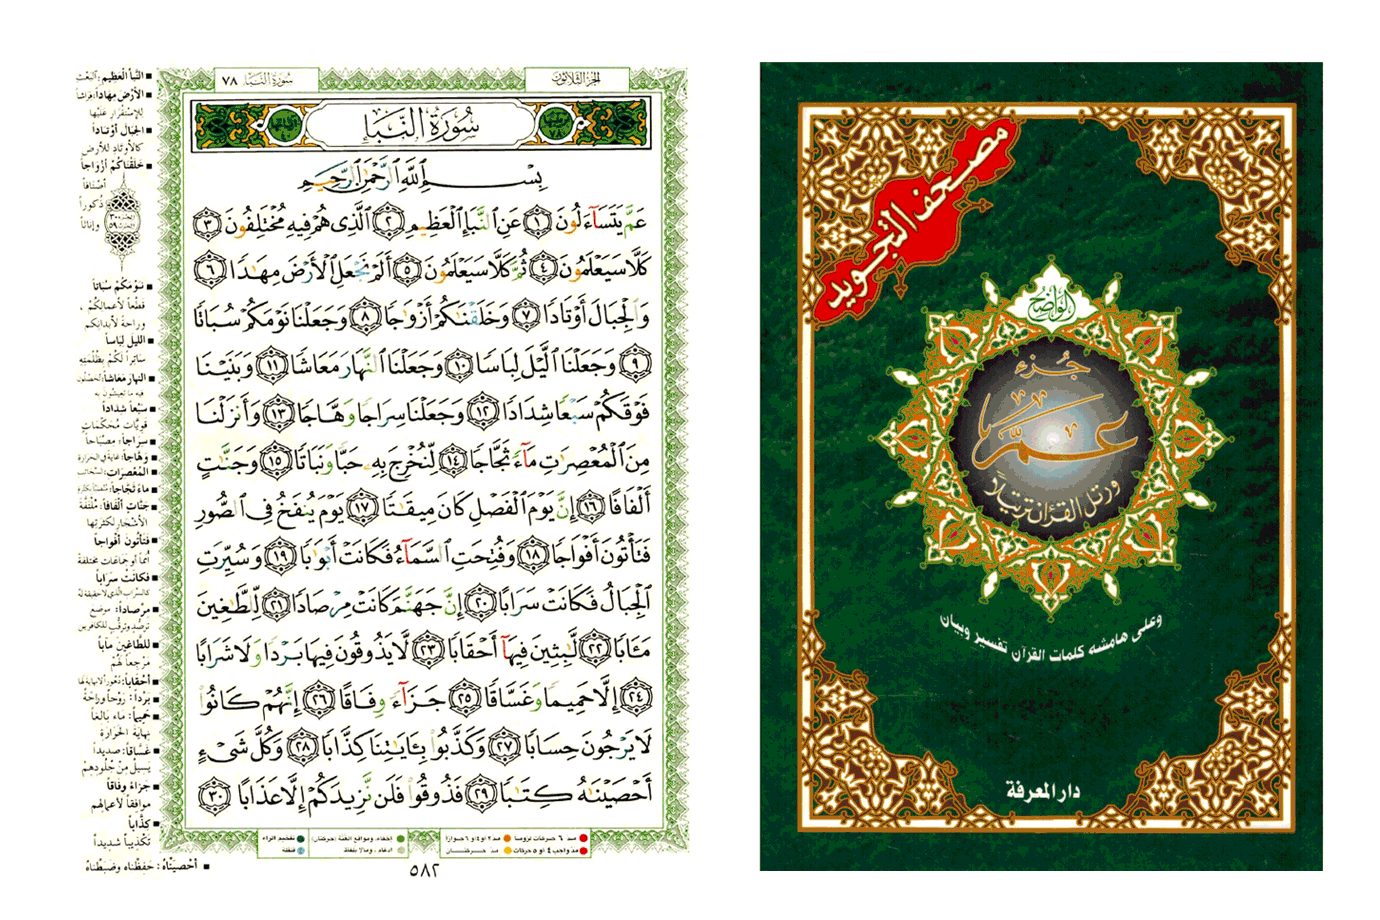 الجزء الثلاثون
سورة النبأ ٧٨
سُورَةُ النَّبَإِ
بِسْمِ ٱللَّهِ ٱلرَّحْمَٰنِ ٱلرَّحِيمِ
عَمَّ يَتَسَآءَلُونَ ١ عَنِ ٱلنَّبَإِ ٱلْعَظِيمِ ٢ ٱلَّذِى هُمْ فِيهِ مُخْتَلِفُونَ ٣
كَلَّا سَيَعْلَمُونَ ٤ ثُمَّ كَلَّا سَيَعْلَمُونَ ٥ أَلَمْ نَجْعَلِ ٱلْأَرْضَ مِهَٰدًا ٦
وَٱلْجِبَالَ أَوْتَادًا ٧ وَخَلَقْنَٰكُمْ أَزْوَٰجًا ٨ وَجَعَلْنَا نَوْمَكُمْ سُبَاتًا
٩ وَجَعَلْنَا ٱلَّيْلَ لِبَاسًا ١٠ وَجَعَلْنَا ٱلنَّهَارَ مَعَاشًا ١١ وَبَنَيْنَا
فَوْقَكُمْ سَبْعًا شِدَادًا ١٢ وَجَعَلْنَا سِرَاجًا وَهَّاجًا ١٣ وَأَنزَلْنَا
مِنَ ٱلْمُعْصِرَٰتِ مَآءً ثَجَّاجًا ١٤ لِّنُخْرِجَ بِهِۦ حَبًّا وَنَبَاتًا ١٥ وَجَنَّٰتٍ
أَلْفَافًا ١٦ إِنَّ يَوْمَ ٱلْفَصْلِ كَانَ مِيقَٰتًا ١٧ يَوْمَ يُنفَخُ فِى ٱلصُّورِ
فَتَأْتُونَ أَفْوَاجًا ١٨ وَفُتِحَتِ ٱلسَّمَآءُ فَكَانَتْ أَبْوَٰبًا ١٩ وَسُيِّرَتِ
ٱلْجِبَالُ فَكَانَتْ سَرَابًا ٢٠ إِنَّ جَهَنَّمَ كَانَتْ مِرْصَادًا ٢١ لِّلطَّٰغِينَ
مَـَٔابًا ٢٢ لَّٰبِثِينَ فِيهَآ أَحْقَابًا ٢٣ لَّا يَذُوقُونَ فِيهَا بَرْدًا وَلَا شَرَابًا
٢٤ إِلَّا حَمِيمًا وَغَسَّاقًا ٢٥ جَزَآءً وِفَاقًا ٢٦ إِنَّهُمْ كَانُوا۟
لَا يَرْجُونَ حِسَابًا ٢٧ وَكَذَّبُوا۟ بِـَٔايَٰتِنَا كِذَّابًا ٢٨ وَكُلَّ شَىْءٍ
أَحْصَيْنَٰهُ كِتَٰبًا ٢٩ فَذُوقُوا۟ فَلَن نَّزِيدَكُمْ إِلَّا عَذَابًا ٣٠
■ النَّبأ الْعَظِيم: البَعْث
■ الأرْضَ مِهَاداً: فِرَاشاً
للإسْتِقْرَارِ عَلَيْها
■ الجِبَالَ أوْتَاداً
كَالأوْتَادِ للأرْض
■ خَلَقْنَاكُمْ أزْوَاجاً
أصْنَافاً
ذُكُوراً
وَإناثاً
■ نَوْمَكُمْ سُبَاتاً
قَطْعاً لأعمَالِكُمْ،
وراحةً لأبدانِكم
■ الليلَ لِبَاساً
سَاتِراً لَكُمْ بِظُلْمَتِهِ
■ النهارَ مَعَاشاً: تُحَصِّلُونَ
فيه ما تعيشون به
■ سَبْعاً شِدَاداً
قَوِيَّاتٍ مُحْكَمَاتٍ
■ سِرَاجاً: مِصْبَاحاً
■ وَهَّاجاً: غايةً في الحرارة
■ المُعْصِرات: السَّحَائب
■ ماءً ثَجَّاجاً: مُنْصَبّاً بكثرة
■ جنّاتٍ ألْفَافاً: مُلْتَفَّةَ
الأشْجَارِ لكثرتِها
■ فَتَأتُون أفْوَاجاً
أُمَماً أو جماعات مختلفة
■ فكانتْ سَرَاباً
كالسراب الذي لا حقيقة له
■ مِرْصَاداً: موضع
ترصّد وترقّب للكافرين
■ للطّاغينَ مآباً
مَرْجِعاً لَهُمْ
■ أحْقَاباً: دُهُوراً لا نهاية لها
■ بَرْداً: رَوْحاً وراحةً
■ حَمِيماً: ماءً بَالِغاً
نِهَايَةَ الحَرَارَة
■ غَسَّاقاً: صديداً
يَسيلُ مِنْ جُلُودِهِمْ
■ جَزَاءً وِفَاقاً
موافِقاً لأعمالِهم
■ كِذَّاباً
تَكْذِيباً شَدِيداً
■ أحْصَيْنَاهُ: حَفِظْنَاه وضَبَطْنَاهُ
مد ٦ حركات لزوماً
مد ٢ أو ٤ أو ٦ جوازاً
مد واجب ٤ أو ٥ حركات
مد حركتان
إخفاء، ومواقع الغنة (حركتان)
إدغام، وما لا يُلفظ
تفخيم الراء
قلقلة
٥٨٢
مصحف التجويد
الواضح
جُزءُ
عَمَّ
ورتل القرآن ترتيلاً
وعلى هامشه كلمات القرآن تفسير وبيان
دار المعرفة